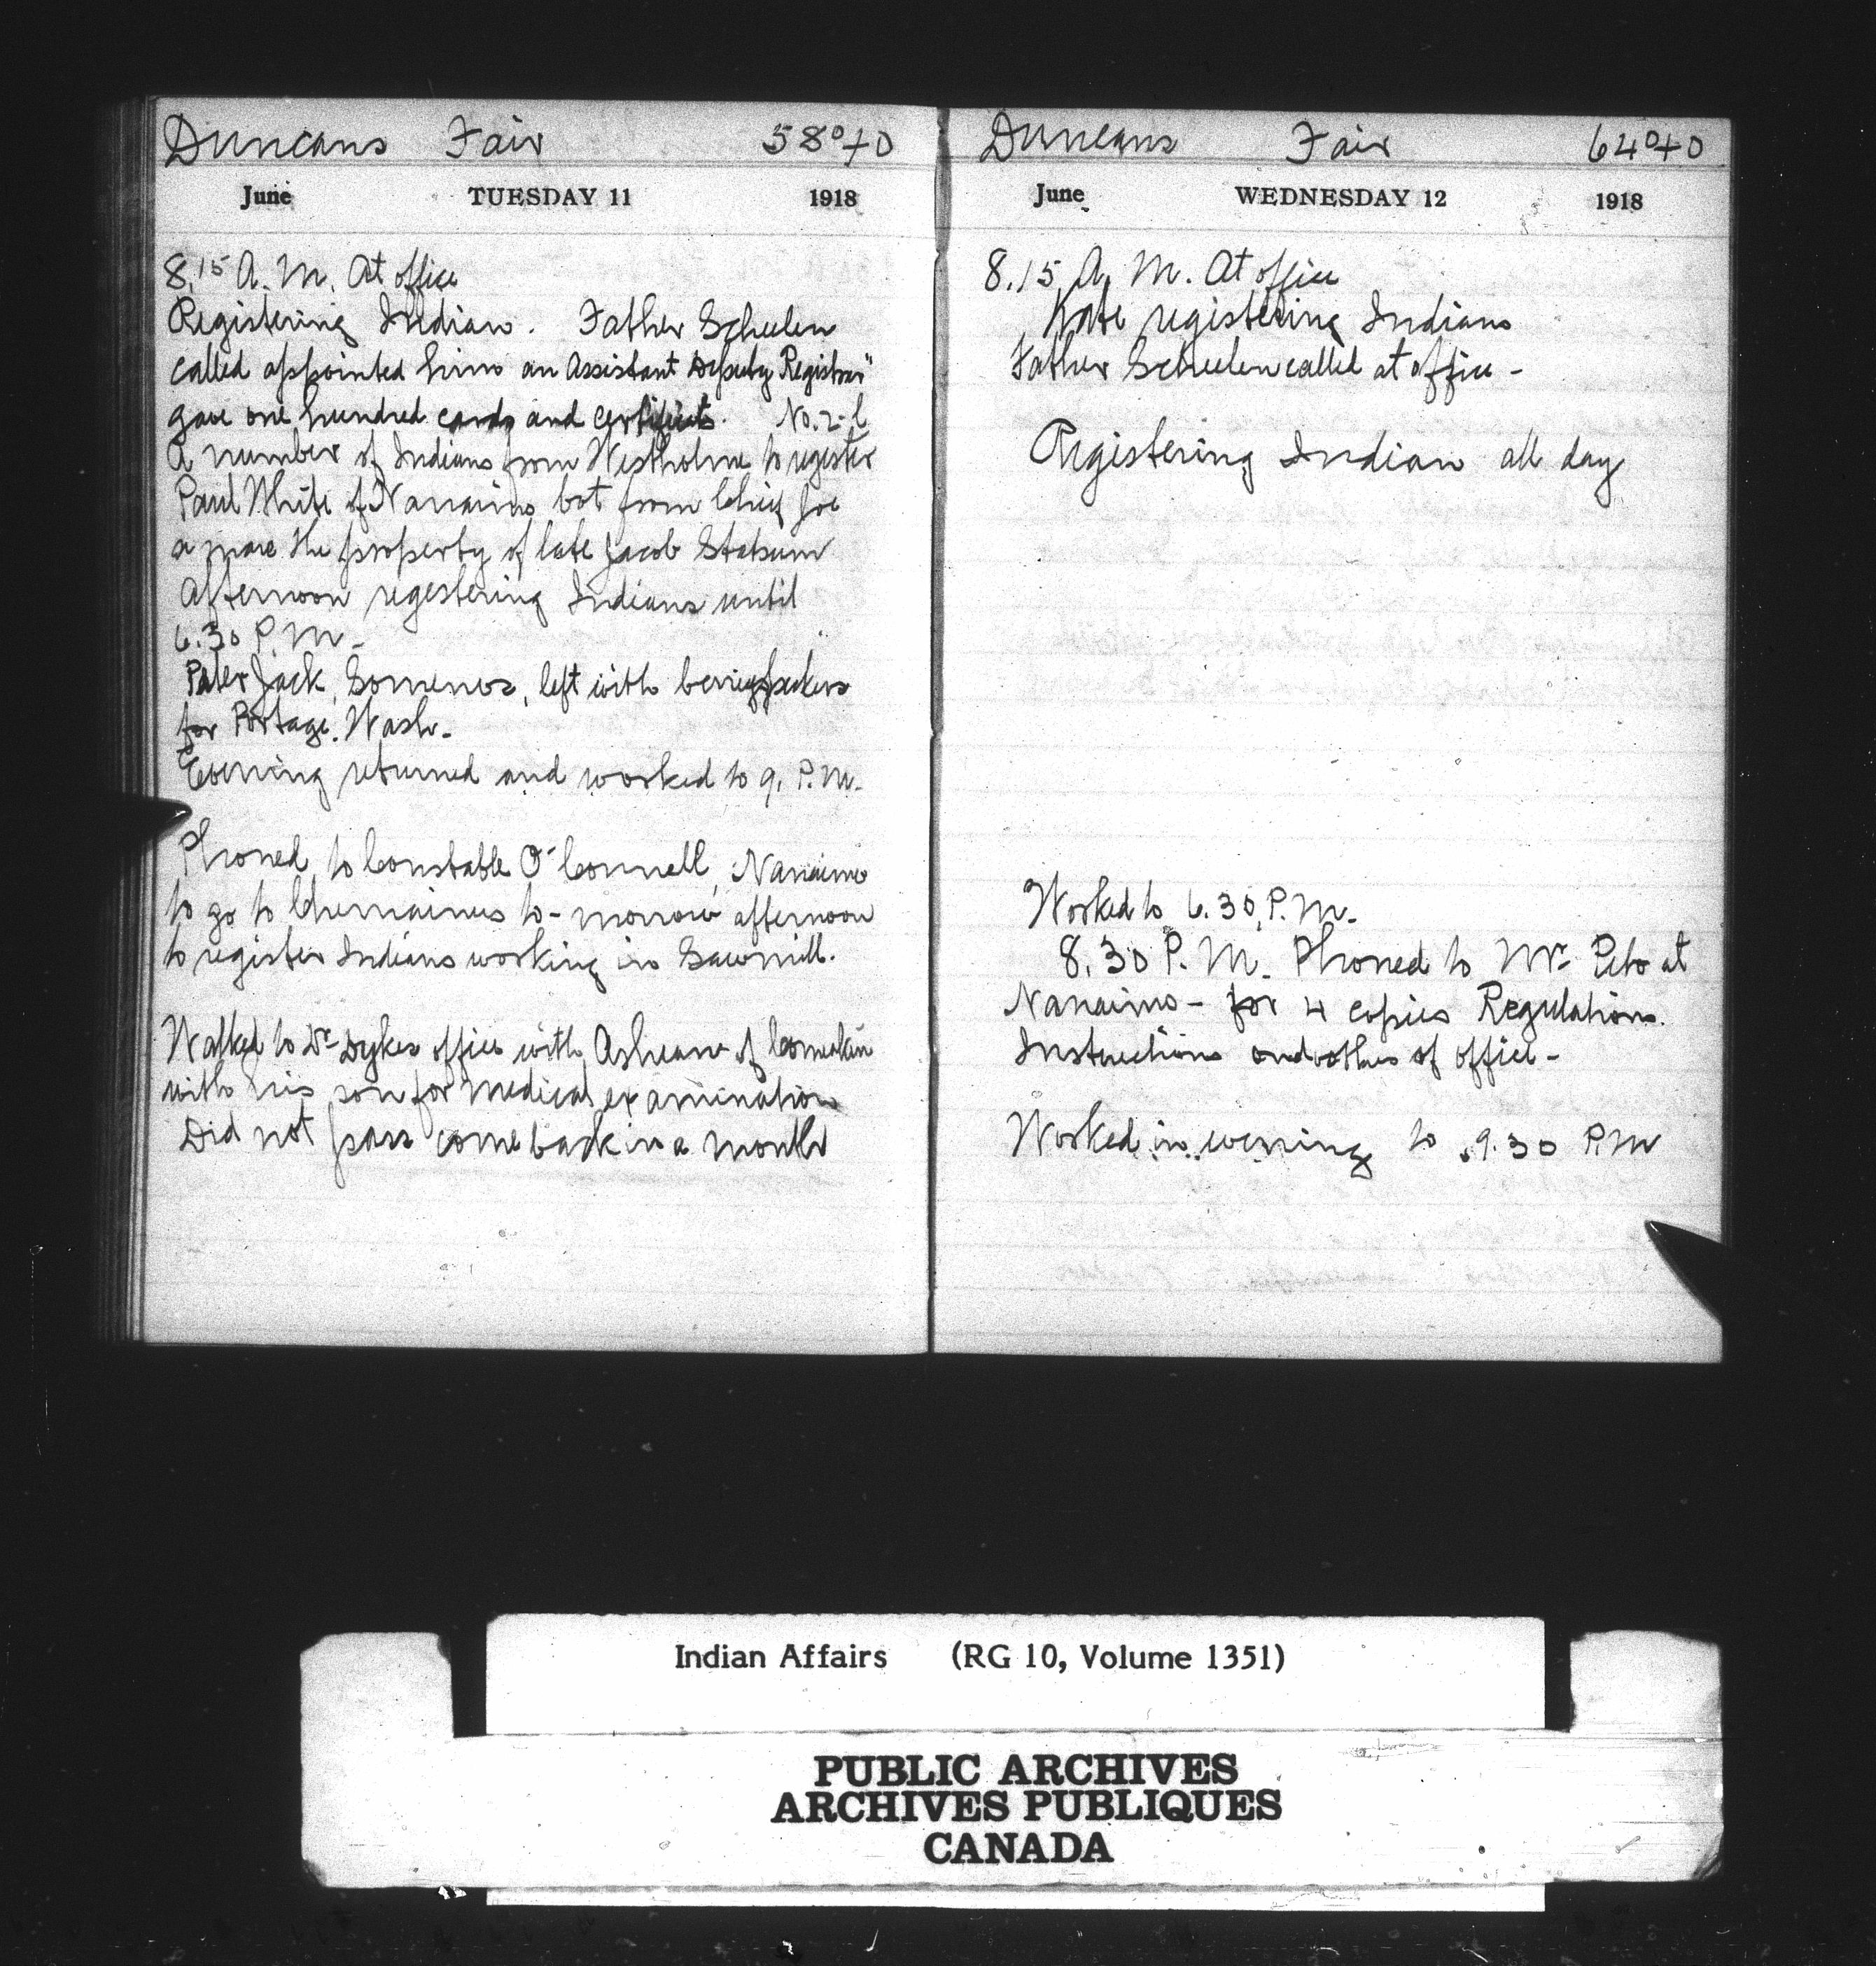 Duncans Fair 58°+0
June TUESDAY 11 1918
8.15 A.M. At office
Registering Indian. Father Scheelen
called appointed him an Assistant Deputy Registrar"
gave one hundred cards and certificts. No.
A number of Indians from Westholme to register
Paul White of Nanaimo bot from Chief Joe
a mare the property of late Jacob
Afternoon regestering Indians until
6.30 P.M -
Peter Jack, Somenos, left with berry
for Portage. Wash.-
Evening returned and worked to 9. P.M.
Phoned to Constable O'Connell, Nanaimo
to go to Chemainus to-morrow afternoon
to register Indians working in Sawmill.
Walked to Dr Dykes office with of Comeakin
with his son for medical examination
Did not pass come back in a month
Duncans Fair 64°+0
June WEDNESDAY 12 1918
8.15 A. M. At office
registering Indians
Father Scheelen called at office -
Registering Indian all day
Worked to 6.30 P.M.
8.30 P.M. Phoned to Mr. Peto at
Nanaimo - for 4 copies Regulations.
Instructions and oths of office -
Worked in evening to 9.30 P.M
Indian Affairs (RG 10, Volume 1351)
PUBLIC ARCHIVES
ARCHIVES PUBLIQUES
CANADA